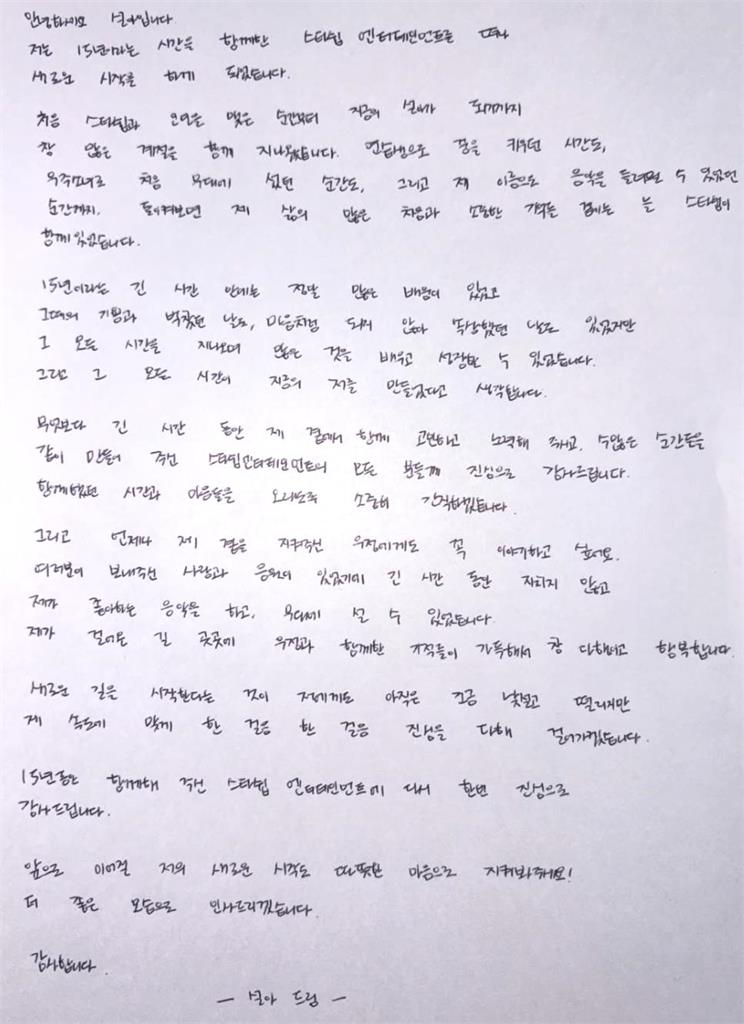 안녕하세요 설아입니다.
저는 15년이라는 시간을 함께한 스타쉽 엔터테인먼트를 떠나
새로운 시작을 하게 되었습니다.
처음 스타쉽과 인연을 맺은 순간부터 지금의 설아가 되기까지
참 많은 계절을 함께 지나왔습니다. 연습생으로 꿈을 키우던 시간도,
우주소녀로 처음 무대에 섰던 순간도, 그리고 제 이름으로 음악을 들려드릴 수 있었던
순간까지. 돌이켜보면 제 삶의 많은 처음과 소중한 기억들 곁에는 늘 스타쉽이
함께 있었습니다.
15년이라는 긴 시간 안에는 정말 많은 배움이 있었고
그때의 기쁨과 벅찼던 날도, 마음처럼 되지 않아 속상했던 날도 있었지만
그 모든 시간을 지나오며 많은 것을 배우고 성장할 수 있었습니다.
그리고 그 모든 시간이 지금의 저를 만들었다고 생각합니다.
무엇보다 긴 시간 동안 제 곁에서 함께 고민하고 노력해 주시고, 수많은 순간들을
같이 만들어 주신 스타쉽엔터테인먼트의 모든 분들께 진심으로 감사드립니다.
함께했던 시간과 마음들을 오래도록 소중히 간직하겠습니다.
그리고 언제나 제 곁을 지켜주신 우정에게도 꼭 이야기하고 싶어요.
여러분이 보내주신 사랑과 응원이 있었기에 긴 시간 동안 지치지 않고
제가 좋아하는 음악을 하고, 무대에 설 수 있었습니다.
제가 걸어온 길 곳곳에 우정과 함께한 기억들이 가득해서 참 다행이고 행복합니다.
새로운 길을 시작한다는 것이 저에게도 아직은 조금 낯설고 떨리지만
제 속도에 맞게 한 걸음 한 걸음 진심을 다해 걸어가겠습니다.
15년동안 함께해 주신 스타쉽 엔터테인먼트에 다시 한번 진심으로
감사드립니다.
앞으로 이어질 저의 새로운 시작도 따뜻한 마음으로 지켜봐주세요!
더 좋은 모습으로 인사드리겠습니다.
감사합니다.
- 설아 드림 -